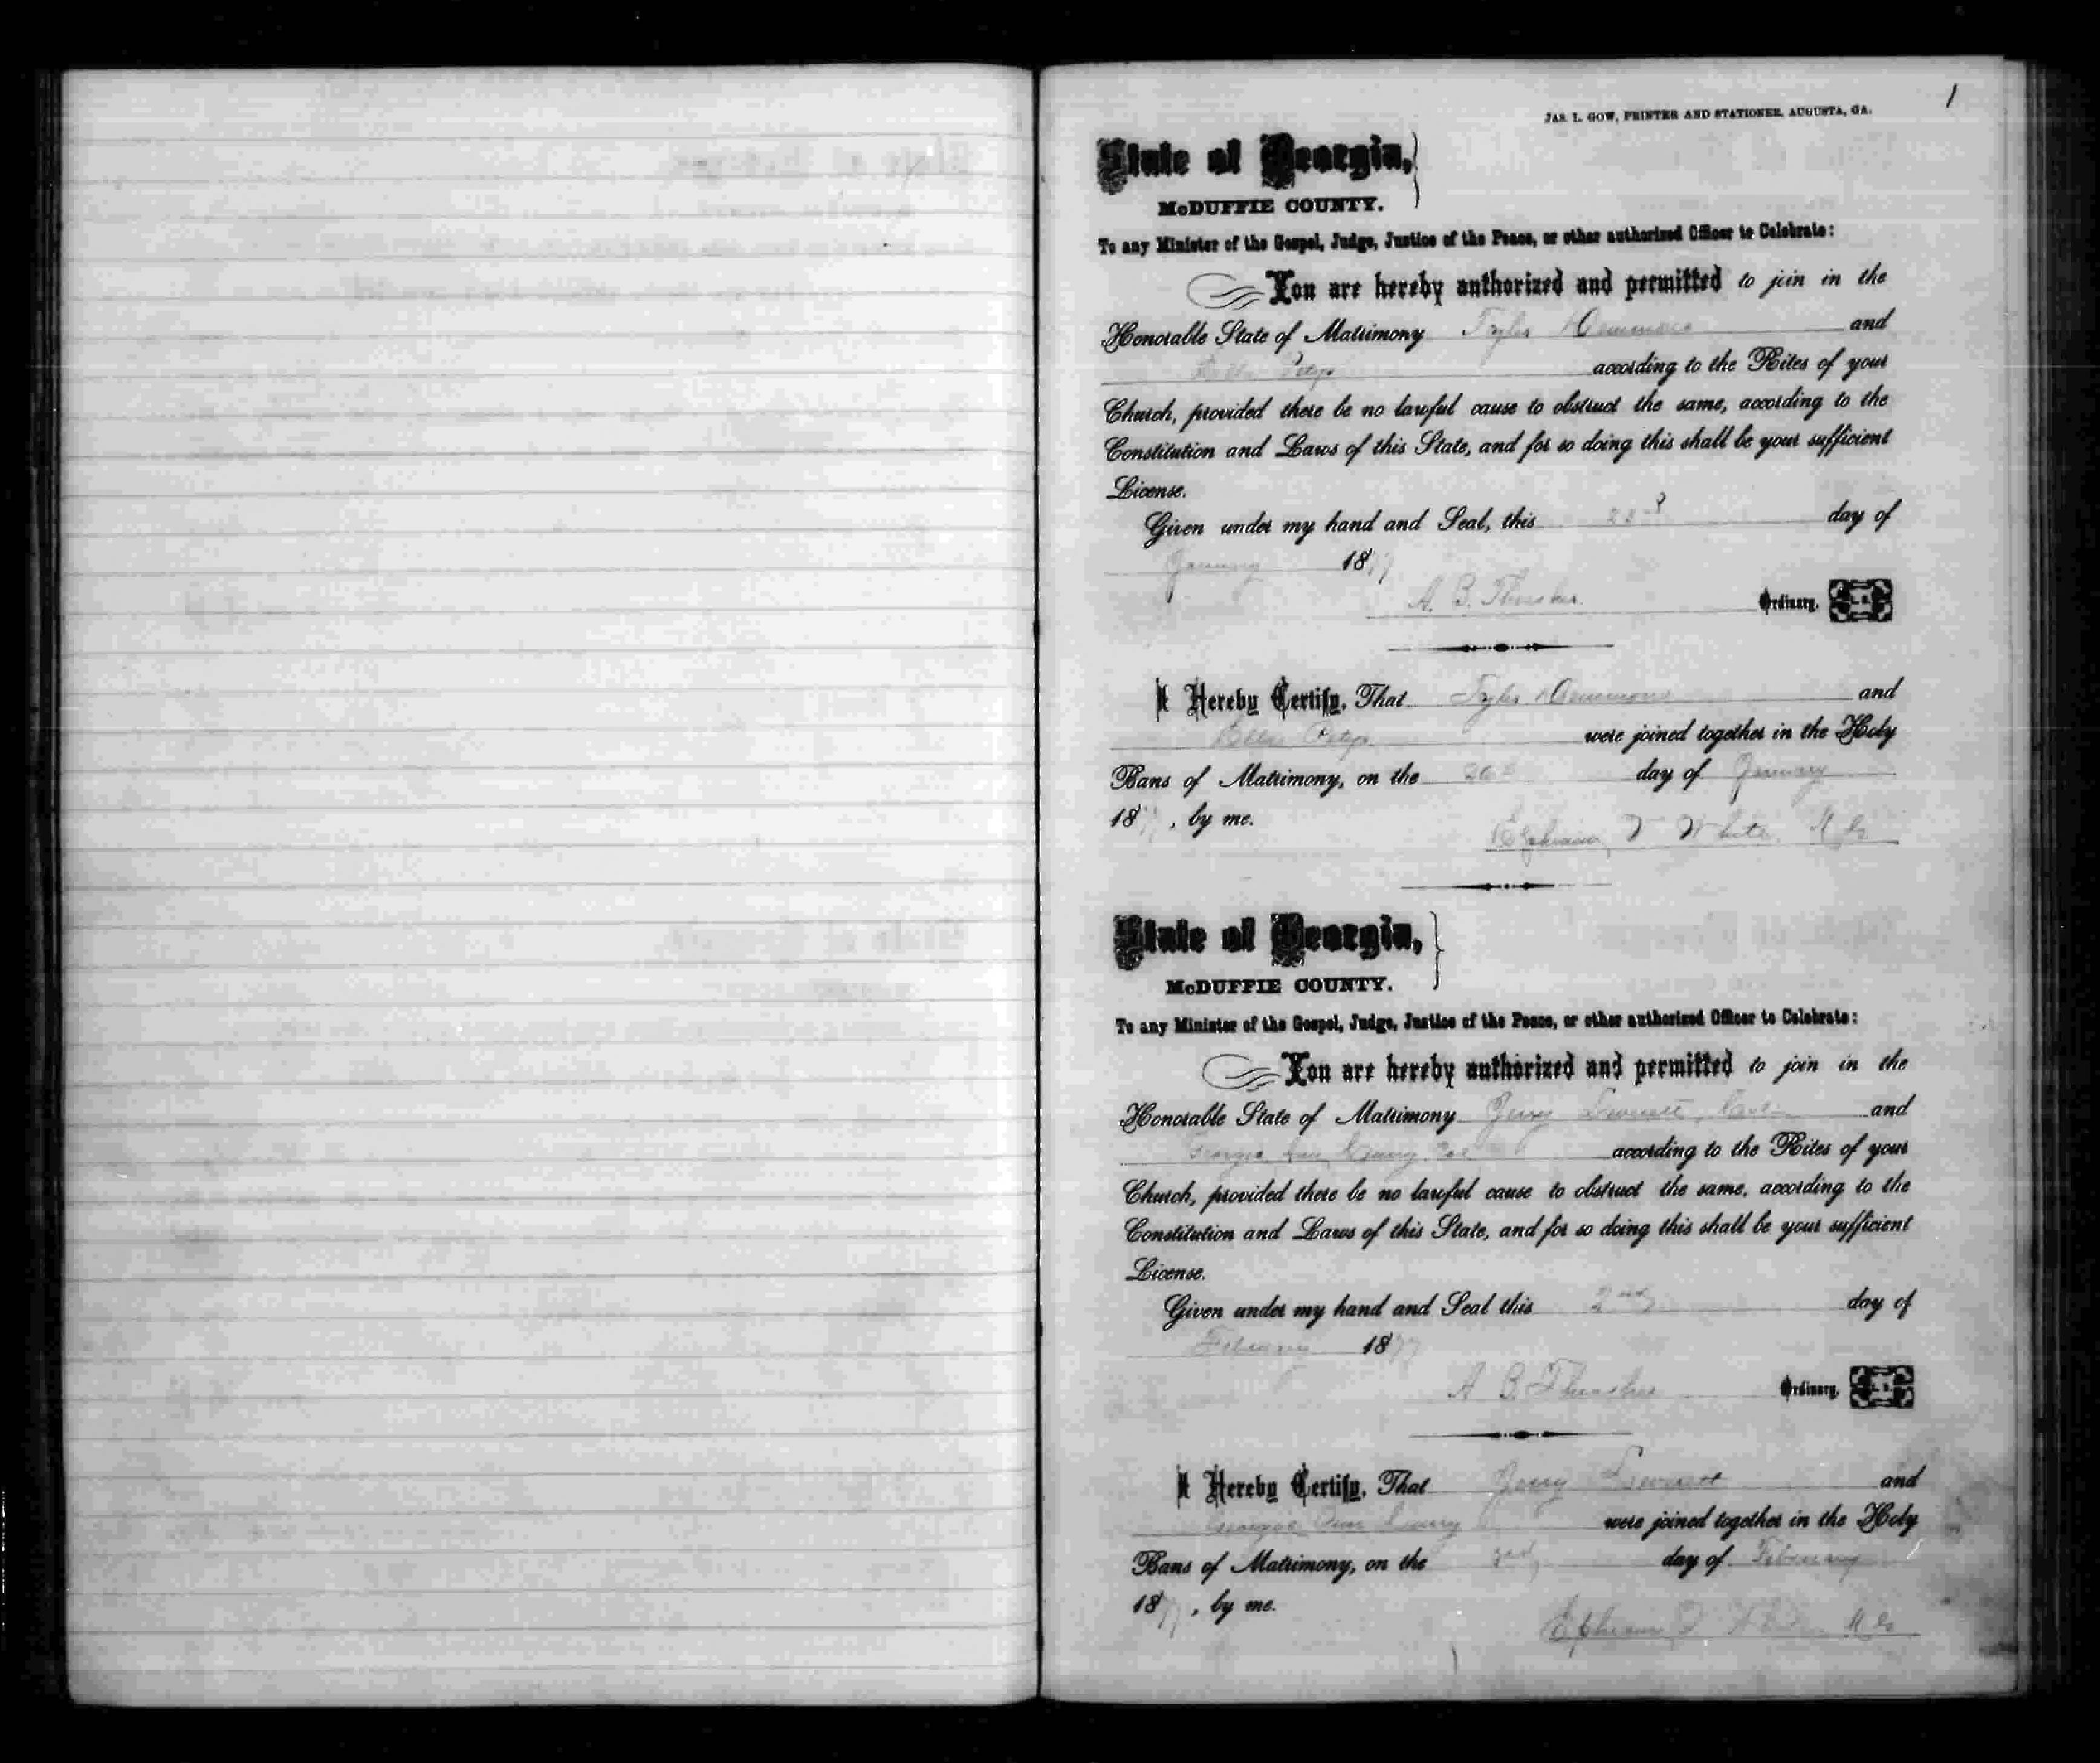 1
JAS. L. GOW, PRINTER AND STATIONER, AUGUSTA, GA.
State of Georgia,
McDUFFIE COUNTY.
To any Minister of the Gospel, Judge, Justice of the Peace, or other authorized Officer to Celebrate:
You are hereby authorized and permitted to join in the
Honorable State of Matrimony and
according to the Rites of your
Church, provided there be no lawful cause to obstruct the same, according to the
Constitution and Laws of this State, and for so doing this shall be your sufficient
License.
Given under my hand and Seal, this day of
January 1877
A. B. Thrasher Ordinary, L. S.
I Hereby Certify, That and
were joined together in the Holy
Bans of Matrimony, on the day of January
1877, by me.
Ephraim V White M G
State of Georgia,
McDUFFIE COUNTY.
To any Minister of the Gospel, Judge, Justice of the Peace, or other authorized Officer to Celebrate:
You are hereby authorized and permitted to join in the
Honorable State of Matrimony Jerry Leverett, and
Georgia Ann according to the Rites of your
Church, provided there be no lawful cause to obstruct the same, according to the
Constitution and Laws of this State, and for so doing this shall be your sufficient
License.
Given under my hand and Seal this 2nd day of
February 1877
A B Thrasher Ordinary, L. S.
I Hereby Certify, That Jerry Leverett and
Georgia Ann were joined together in the Holy
Bans of Matrimony, on the day of February
1877, by me.
Ephraim V White M G